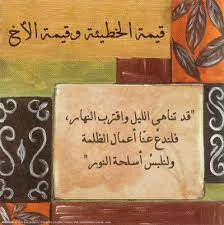 قيمة الخطيئة وقيمة الأخ
"قد تناهى الليل واقترب النهار،
فلندعْ عنّا أعمال الظلمة
ولنلبسْ أسلحة النور"